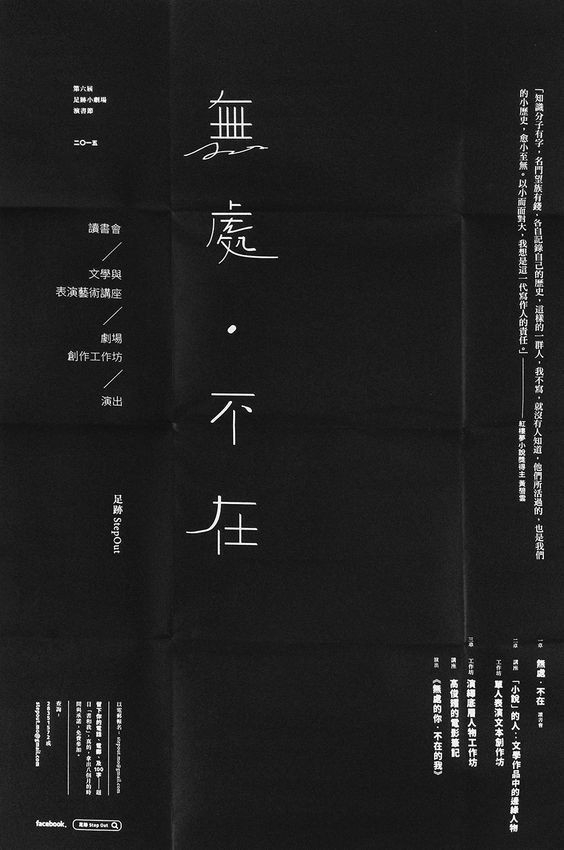 「知識分子有字，名門望族有錢，各自記錄自己的歷史，這樣的一群人，我不寫，就沒有人知道，他們所活過的，也是我們
的小歷史，愈小至無。以小而面對大，我想是這一代寫作人的責任。」——紅樓夢小說獎得主 黃碧雲
無處・不在
第六屆
足跡小劇場
演書節
二〇一五
讀書會
文學與
表演藝術講座
劇場
創作工作坊
演出
足跡 StepOut
一章 無處・不在 讀書會
二章 講座 「小說」的人：文學作品中的邊緣人物
工作坊 單人表演文本創作坊
三章 工作坊 演繹底層人物工作坊
講座 高俊耀的電影筆記
演出 《無處的你・不在的我》
以電郵報名，stepout.mo@gmail.com
留下你的電話、電郵、及100字——題
目「書和我」，真的，拿出八個月的時
間與承諾，免費參加。
查詢，
28351572 或
stepout.mo@gmail.com
facebook.
足跡 Step Out